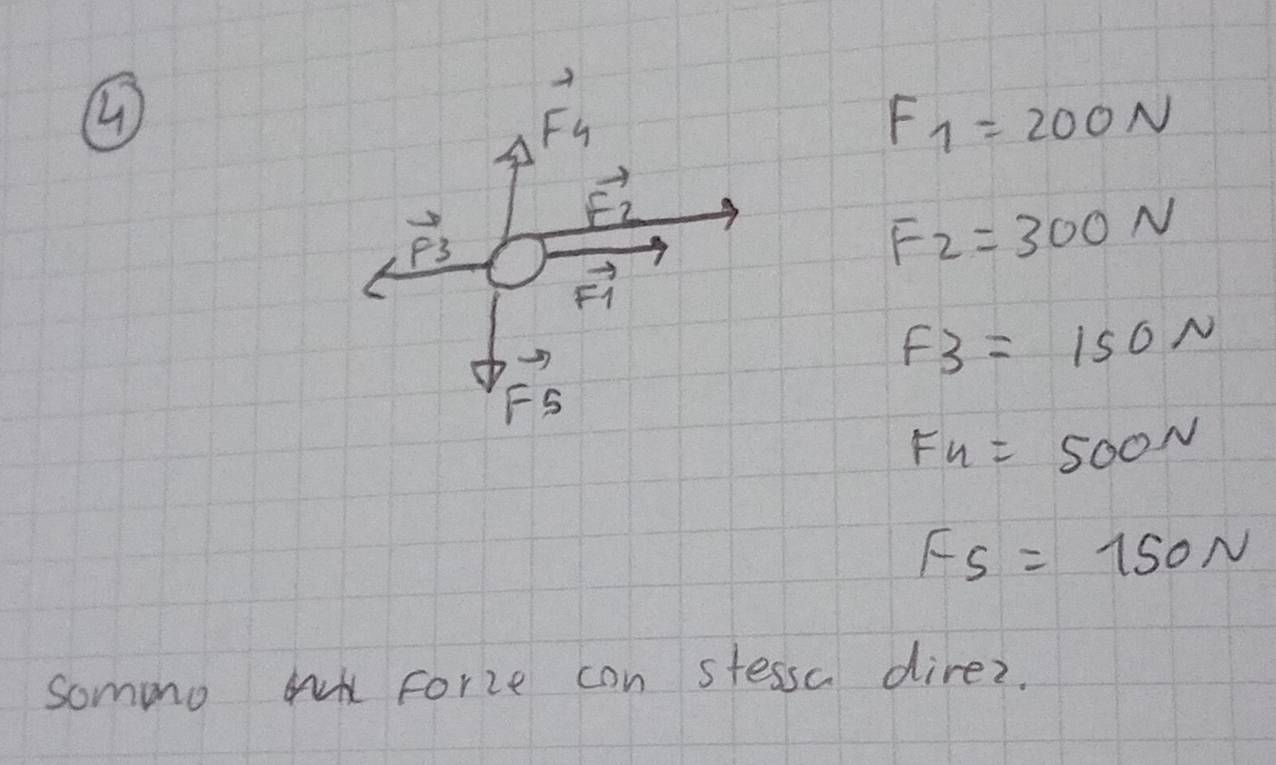 4
F4
F2
F3
F1
F5
F1 = 200 N
F2 = 300 N
F3 = 150 N
F4 = 500 N
F5 = 150 N
sommo forze con stessa direz.